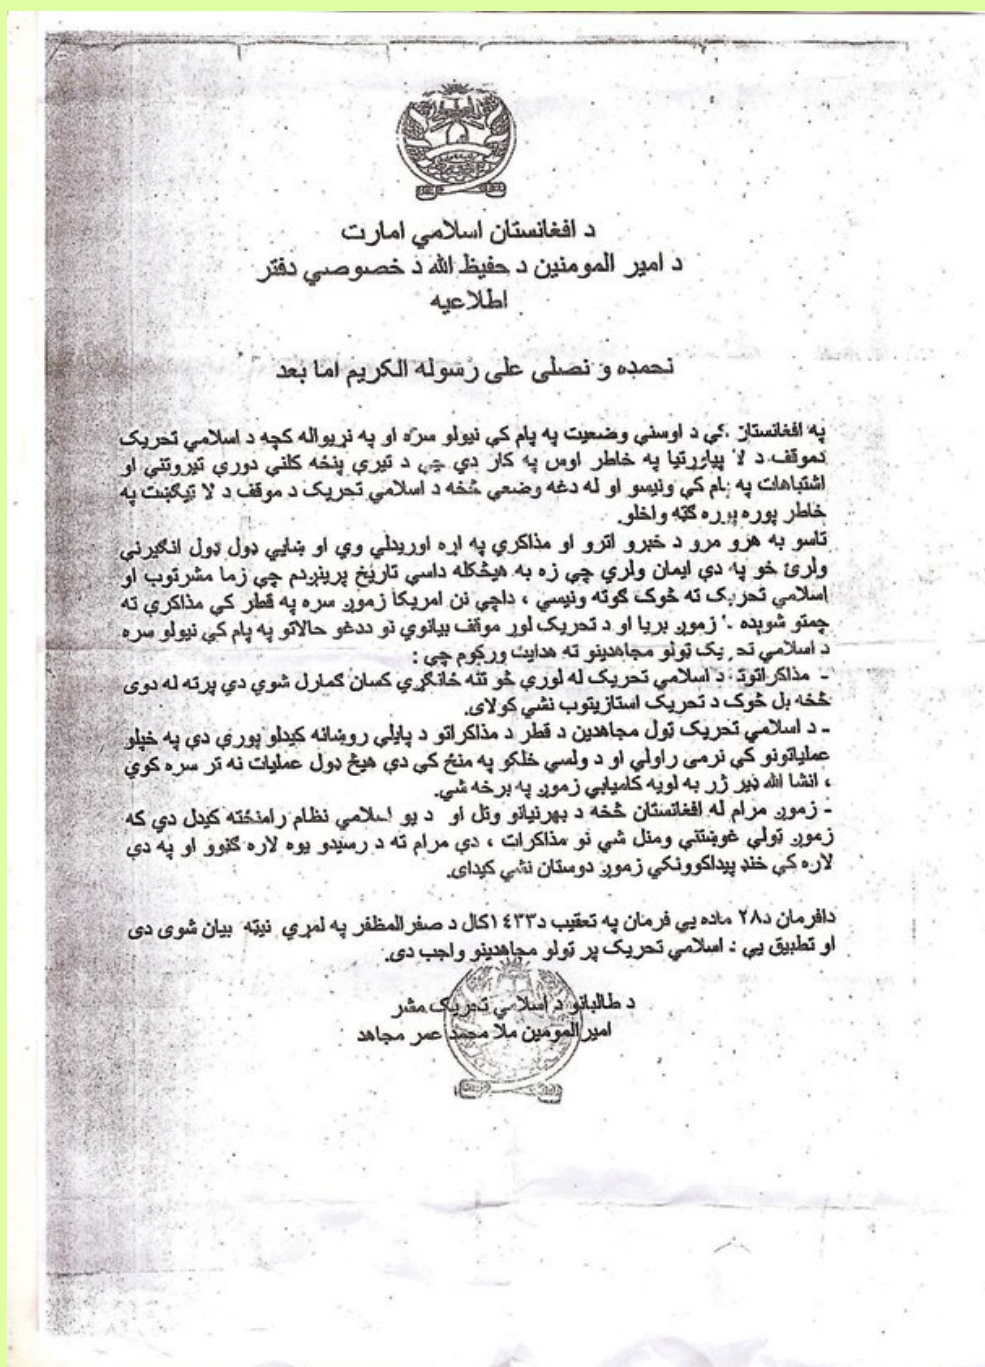 د افغانستان اسلامي امارت
د امیر المومنین د حفیظ الله د خصوصي دفتر
اطلاعیه
نحمده و نصلی علی رسوله الکریم اما بعد
په افغانستان کي د اوسني وضعیت په پام کي نیولو سره او په نړیواله کچه د اسلامي تحریک
دموقف د لا پیاوړتیا په خاطر اوس په کار دي چي د تیري پنځه کلني دوري تیروتني او
اشتباهات په پام کي ونیسو او له دغه وضعي څخه د اسلامي تحریک د موقف د لا ټیګښت په
خاطر پوره پوره ګټه واخلو.
تاسو به هرو مرو د خبرو اترو او مذاکري په اړه اوریدلي وي او ښایي ډول ډول انګیرني
ولرئ خو په دي ایمان ولري چي زه به هیڅکله داسي تاریخ پرینږدم چي زما مشرتوب او
اسلامي تحریک ته څوک ګوته ونیسي ، داچي نن امریکا زموږ سره په قطر کي مذاکرې ته
چمتو شویده زموږ بریا او د تحریک لوړ موقف بیانوي نو ددغو حالاتو په پام کي نیولو سره
د اسلامي تحریک ټولو مجاهدینو ته هدایت ورکوم چي :
- مذاکراتوته د اسلامي تحریک له لوري څو تنه ځانګړي کسان ګمارل شوي دي پرته له دوی
څخه بل څوک د تحریک استازیتوب نشي کولای.
- د اسلامي تحریک ټول مجاهدین د قطر د مذاکراتو د پایلي روښانه کیدلو پوري دي په خپلو
عملیاتونو کي نرمی راولي او د ولسي خلکو په منځ کي دي هیڅ ډول عملیات نه تر سره کوي
، انشا الله ډیر ژر به لویه کامیابي زموږ په برخه شي.
- زموږ مرام له افغانستان څخه د بهرنیانو وتل او د یو اسلامي نظام رامنځته کیدل دي که
زموږ ټولي غوښتني ومنل شي نو مذاکرات ، دي مرام ته د رسیدو یوه لاره ګڼوو او په دي
لاره کي خنډ پیداکوونکي زموږ دوستان نشي کیدای.
دافرمان د۲۸ ماده یي فرمان په تعقیب د۱٤۳۳کال د صفرالمظفر په لمړي نیټه بیان شوی دی
او تطبیق یي د اسلامي تحریک پر ټولو مجاهدینو واجب دی.
د طالبانو د اسلامي تحریک مشر
امیرالمومین ملا محمد عمر مجاهد